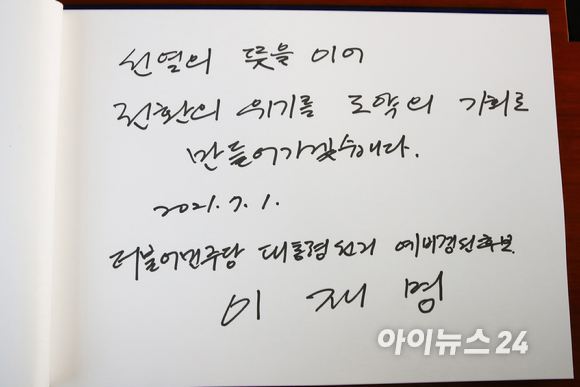 선열의 뜻을 이어
전환의 위기를 도약의 기회로
만들어가겠습니다.
2021. 7. 1.
더불어민주당 대통령선거 예비경선후보
이 재 명
아이뉴스24